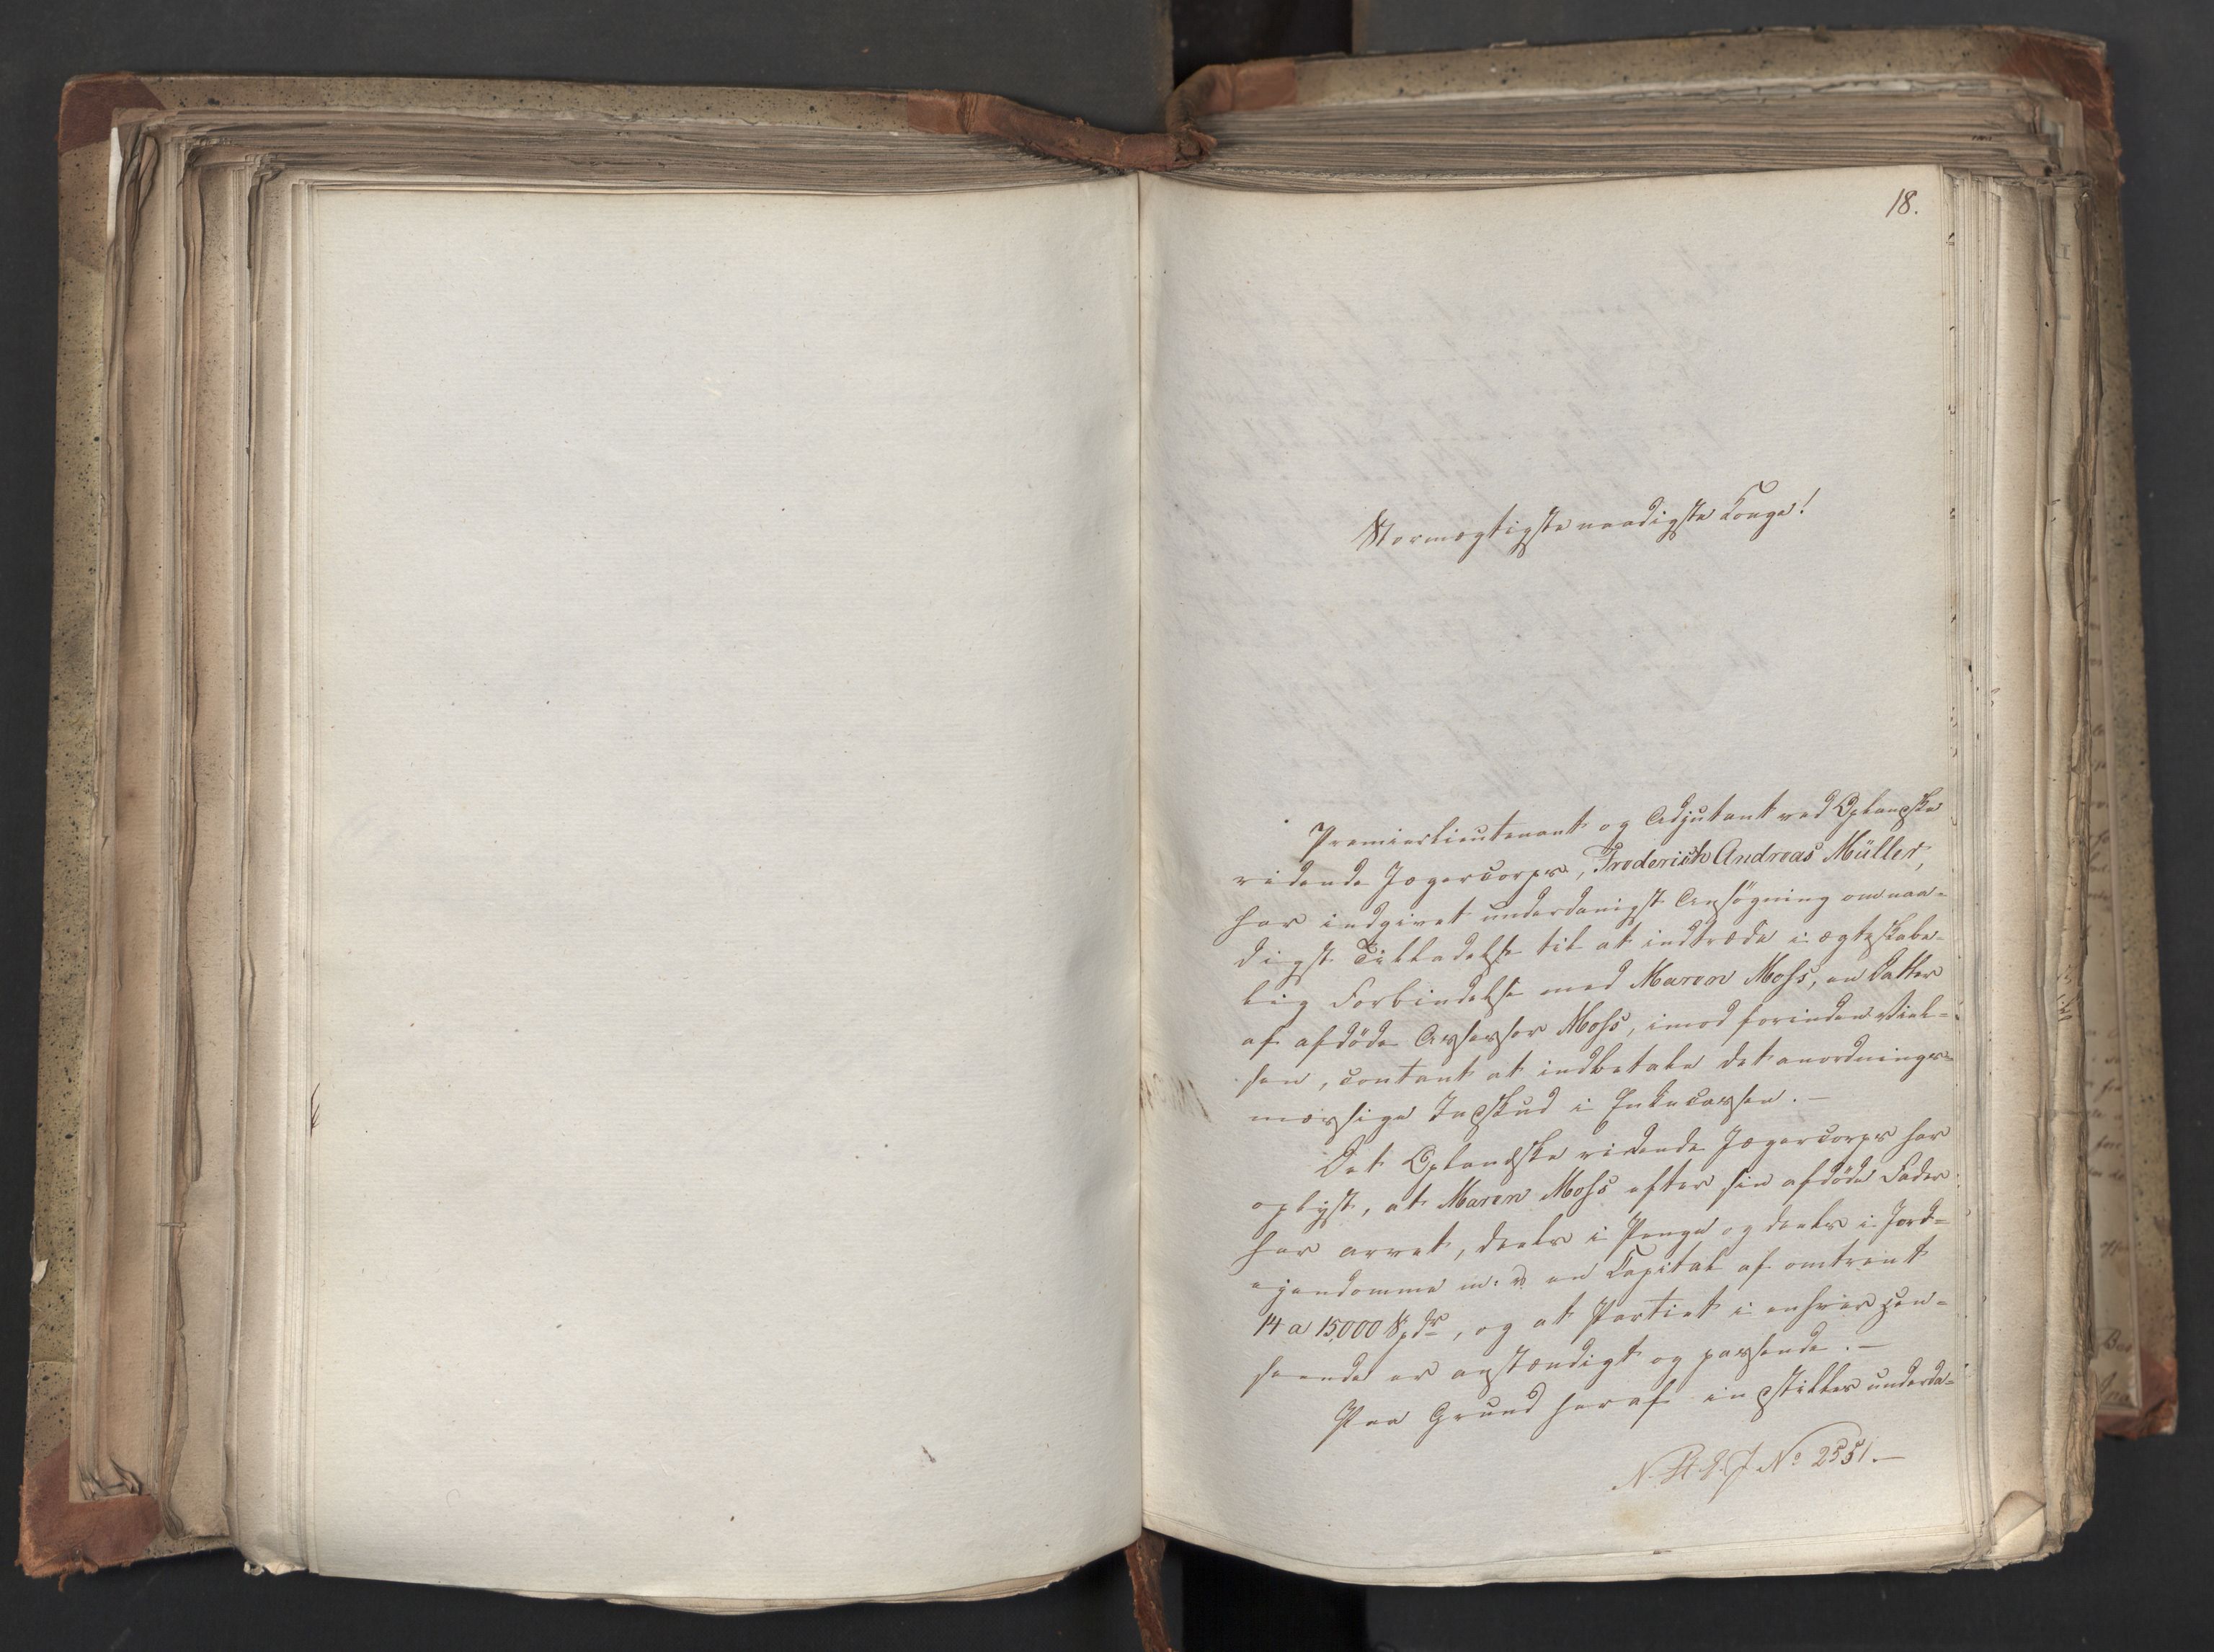 18.
Stormægtigste naadigste Konge!
Premierlieutenant og Adjutant ved Oplandske
ridende Jægercorps, Frederich Andreas Müller,
har indgivet underdanigst Ansøgning om naa-
digst Tilladelse til at indtræde i ægteskabe-
lig Forbindelse med Maren Moss, en Datter
af afdøde Assessor Moss, imod forinden Viel-
sen, contant at indbetale det anordnings-
mæssige Indskud i Enkecassen. —
Det Oplandske ridende Jægercorps har
oplyst, at Maren Moss efter sin afdøde Fader
har arvet, deels i Penge og deels i Jord-
ejendomme m. v. en Capital af omtrent
14 a 15,000 Spdr, og at Partiet i enhver Hen-
seende er anstændigt og passende. —
Paa Grund heraf indstilles underda-
N. St. S. J. No 2551. —